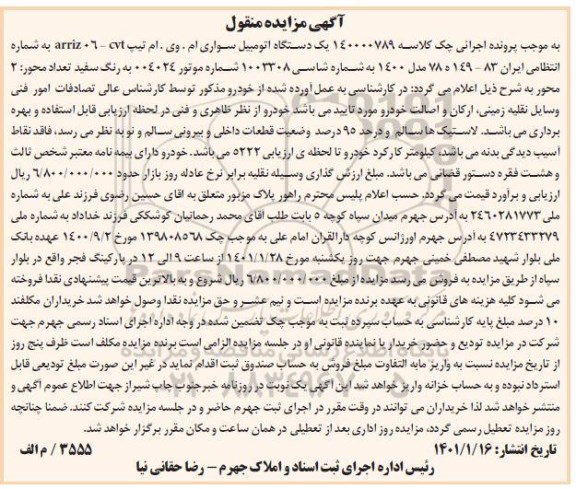 آگهی مزایده منقول
به موجب پرونده اجرائی چک کلاسه ۱۴۰۰۰۰۷۸۹ یک دستگاه اتومبیل سواری ام . وی . ام تیپ arriz ۰۶ - cvt به شماره
انتظامی ایران ۸۳ - ۱۴۹ ه ۷۸ مدل ۱۴۰۰ به شماره شاسی ۱۰۰۲۳۰۸ شماره موتور ۰۰۴۰۲۴ به رنگ سفید تعداد محور: ۲
محور به شرح ذیل اعلام می گردد: در کارشناسی به عمل آورده شده از خودرو مذکور توسط کارشناس عالی تصادفات امور فنی
وسایل نقلیه زمینی، ارکان و اصالت خودرو مورد تایید می باشد خودرو از نظر ظاهری و فنی در لحظه ارزیابی قابل استفاده و بهره
برداری می باشد. لاستیک ها سالم و درحد ۹۵ درصد وضعیت قطعات داخلی و بیرونی سالم و نو به نظر می رسد، فاقد نقاط
آسیب دیدگی بدنه می باشد. کیلومتر کارکرد خودرو تا لحظه ی ارزیابی ۵۲۲۲ می باشد. خودرو دارای بیمه نامه معتبر شخص ثالث
و هشت فقره دستور قضائی می باشد. مبلغ ارزش گذاری وسیله نقلیه برابر نرخ عادله روز بازار حدود ۶/۸۰۰/۰۰۰/۰۰۰ ریال
ارزیابی و برآورد قیمت می گردد. حسب اعلام پلیس محترم راهور پلاک مزبور متعلق به اقای حسین رضوی فرزند علی به شماره
ملی ۲۴۶۰۲۸۱۷۷۳ به آدرس جهرم میدان سپاه کوچه ۵ بابت طلب اقای محمد رحمانیان کوشککی فرزند خداداد به شماره ملی
۴۷۲۳۴۳۳۲۷۹ به ادرس جهرم اورژانس کوچه دارالقران امام علی به موجب چک ۱۳۹۸۰۸۵۶۸ مورخ ۱۴۰۰/۹/۲ عهده بانک
ملی بلوار شهید مصطفی خمینی جهرم جهت روز یکشنبه مورخ ۱۴۰۱/۱/۲۸ از ساعت ۹ الی ۱۲ در پارکینگ فجر واقع در بلوار
سپاه از طریق مزایده به فروش می رسد مزایده از مبلغ ۶/۸۰۰/۰۰۰/۰۰۰ ریال شروع و به بالاترین قیمت پیشنهادی نقدا فروخته
می شود کلیه هزینه های قانونی به عهده برنده مزایده است و نیم عشر و حق مزایده نقدا وصول خواهد شد خریداران مکلفند
۱۰ درصد مبلغ پایه کارشناسی به حساب سپرده ثبت به موجب چک تضمین شده در وجه اداره اجرای اسناد رسمی جهرم جهت
شرکت در مزایده تودیع و حضور خریدار یا نماینده قانونی او در جلسه مزایده الزامی است برنده مزایده مکلف است ظرف پنج روز
از تاریخ مزایده نسبت به واریز مابه التفاوت مبلغ فروش به حساب صندوق ثبت اقدام نماید در غیر این صورت مبلغ تودیعی قابل
استرداد نبوده و به حساب خزانه واریز خواهد شد این آگهی یک نوبت در روزنامه خبرجنوب چاپ شیراز جهت اطلاع عموم اگهی و
منتشر خواهد شد لذا خریداران می توانند در وقت مقرر در اجرای ثبت جهرم حاضر و در جلسه مزایده شرکت کنند. ضمنا چنانچه
روز مزایده تعطیل رسمی گردد، مزایده روز اداری بعد از تعطیلی در همان ساعت و مکان مقرر برگزار خواهد شد.
تاریخ انتشار: ۱۴۰۱/۱/۱۶
۳۵۵۵ / م الف
رئیس اداره اجرای ثبت اسناد و املاک جهرم - رضا حقانی نیا